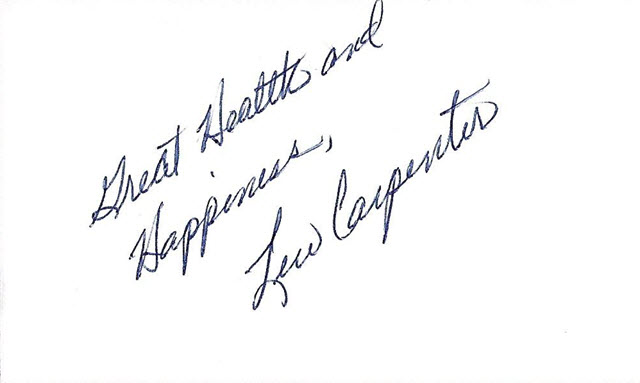 Great Health and
Happiness,
Lew Carpenter